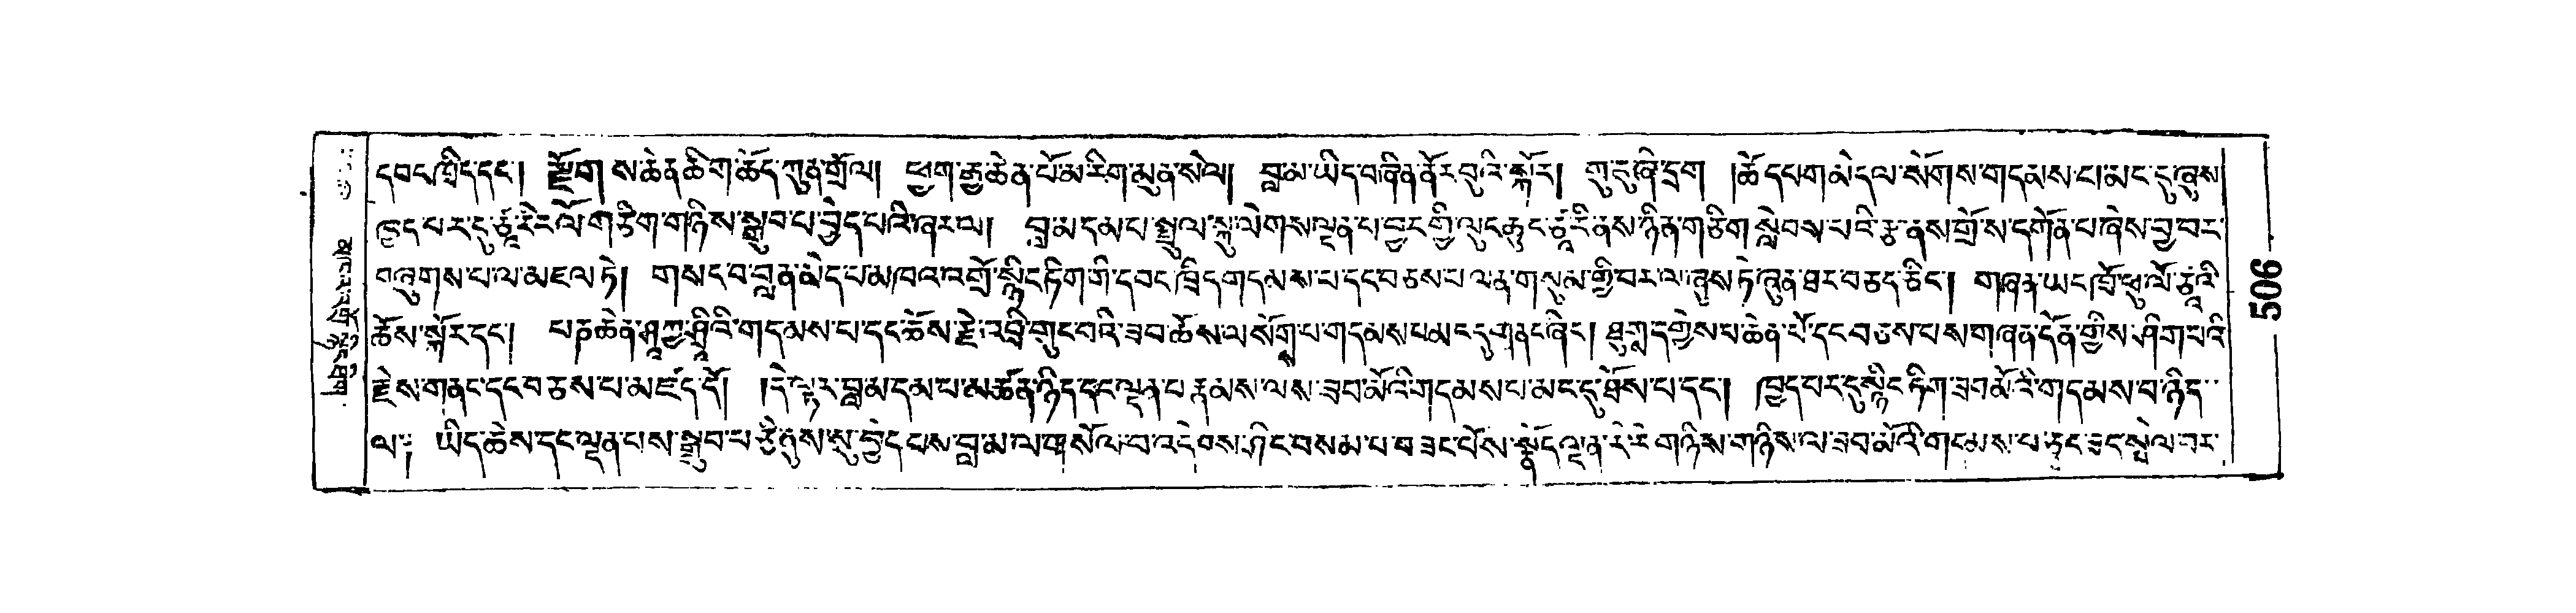 དབང་ཁྲིད་དང་། རྫོགས་ཆེན་ཆིག་ཆོད་ཀུན་གྲོལ། ཕྱག་རྒྱ་ཆེན་པོ་མ་རིག་མུན་སེལ། བླ་མ་ཡིད་བཞིན་ནོར་བུའི་སྐོར། གུ་རུ་ཞི་དྲག །ཚེ་དཔག་མེད་ལ་སོགས་གདམས་ངག་མང་དུ་ཞུས།
ཁྱད་པར་དུ་ཙཱ་རིར་ལོ་གཅིག་གཉིས་སྒྲུབ་པ་བྱེད་པའི་ཞར་ལ། བླ་མ་དམ་པ་སྤྲུལ་སྐུ་ལེགས་ལྡན་པ་བྱར་གྱི་ལུང་ཆུང་ཙཱ་རི་ནས་ཉིན་གཅིག་སླེབས་པའི་རྩ་ནས་གྲོ་ས་དགོན་པ་ཞེས་བྱ་བར་
བཞུགས་པ་ལ་མཇལ་ཏེ། གསང་བ་བླན་མེད་པ་མཁའ་འགྲོ་སྙིང་ཏིག་གི་དབང་ཁྲིད་གདམས་པ་དང་བཅས་པ་ལན་གསུམ་གྱི་བར་ལ་ཞུས་ཏེ་ཞུན་ཐར་བཅད་ཅིང་། གཞན་ཡང་ཁྲོ་ཕུ་ལོ་ཙཱའི་
ཆོས་སྐོར་དང་། པཎ་ཆེན་ཤཱཀྱ་ཤྲཱིའི་གདམས་པ་དང་ཆོས་རྗེ་འབྲི་གུང་བའི་ཟབ་ཆོས་ལ་སོགས་པ་གདམས་པ་མང་དུ་གནང་ཞིང་། ཐུགས་དགྱེས་པ་ཆེན་པོ་དང་བཅས་པས་གཞན་དོན་གྱིས་ཤིག་པའི་
རྗེས་གནང་དང་བཅས་པ་མཛད་དོ། །དེ་ལྟར་བླ་མ་དམ་པ་མཚན་ཉིད་དང་ལྡན་པ་རྣམས་ལས་ཟབ་མོའི་གདམས་པ་མང་དུ་ཐོས་པ་དང་། ཁྱད་པར་དུ་སྙིང་ཏིག་ཟབ་མོའི་གདམས་པ་ཉིད་
ལ་ ཡིད་ཆེས་དང་ལྡན་པས་སྒྲུབ་པ་ཅི་ནུས་སུ་བྱེད་པས་བླ་མ་ལ་གསོལ་བ་འདེབས་ཤིང་བསམ་པ་བཟང་པོས་སྣོད་ལྡན་རེ་རེ་གཉིས་གཉིས་ལ་ཟབ་མོའི་གདམས་པ་ཅུང་ཟད་སྤེལ་བར་
605